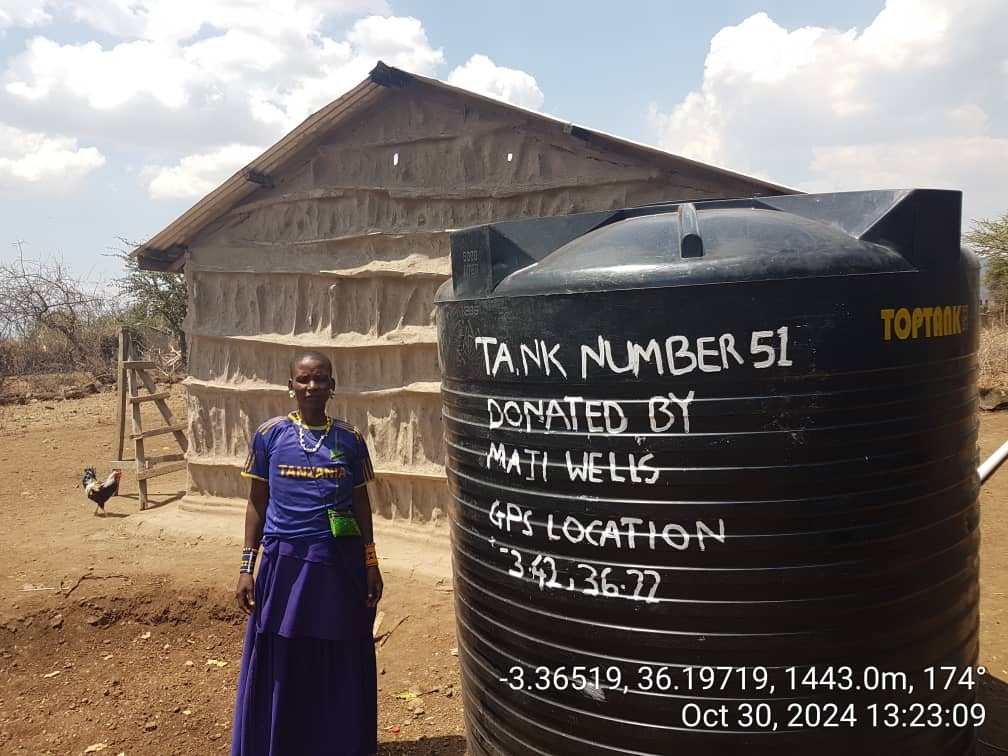 5000
TOPTANK
TANK NUMBER 51
DONATED BY
MAJI WELLS
GPS LOCATION
-3.42,36.22
TANZANIA
-3.36519, 36.19719, 1443.0m, 174°
Oct 30, 2024 13:23:09